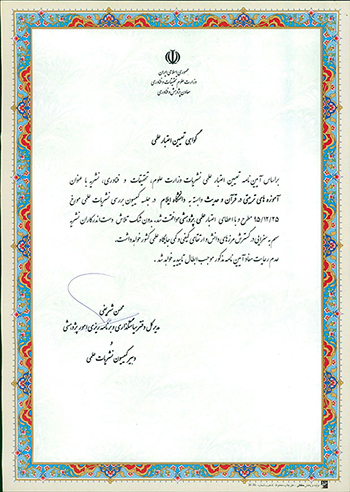 جمهوری اسلامی ایران
وزارت علوم، تحقیقات و فناوری
معاون پژوهش و فناوری
گواهی تعیین اعتبار علمی
براساس آیین نامه تعیین اعتبار علمی نشریات وزارت علوم، تحقیقات و فناوری، نشریه با عنوان
آموزه های تربیتی در قرآن و حدیث وابسته به دانشگاه ایلام در جلسه کمیسیون بررسی نشریات علمی مورخ
۹۵/۱۲/۲۵ مطرح و با اعطای اعتبار علمی پژوهشی موافقت شد. بدون شک تلاش دست اندرکاران نشریه
سهم بسزایی در گسترش مرزهای دانش و ارتقای کیفی و کمی جایگاه علمی کشور خواهد داشت.
عدم رعایت مفاد آیین نامه مذکور موجب ابطال تاییدیه خواهد شد.
محسن شریفی
مدیرکل دفتر سیاستگذاری و برنامه ریزی امور پژوهشی
و
دبیر کمیسیون نشریات علمی